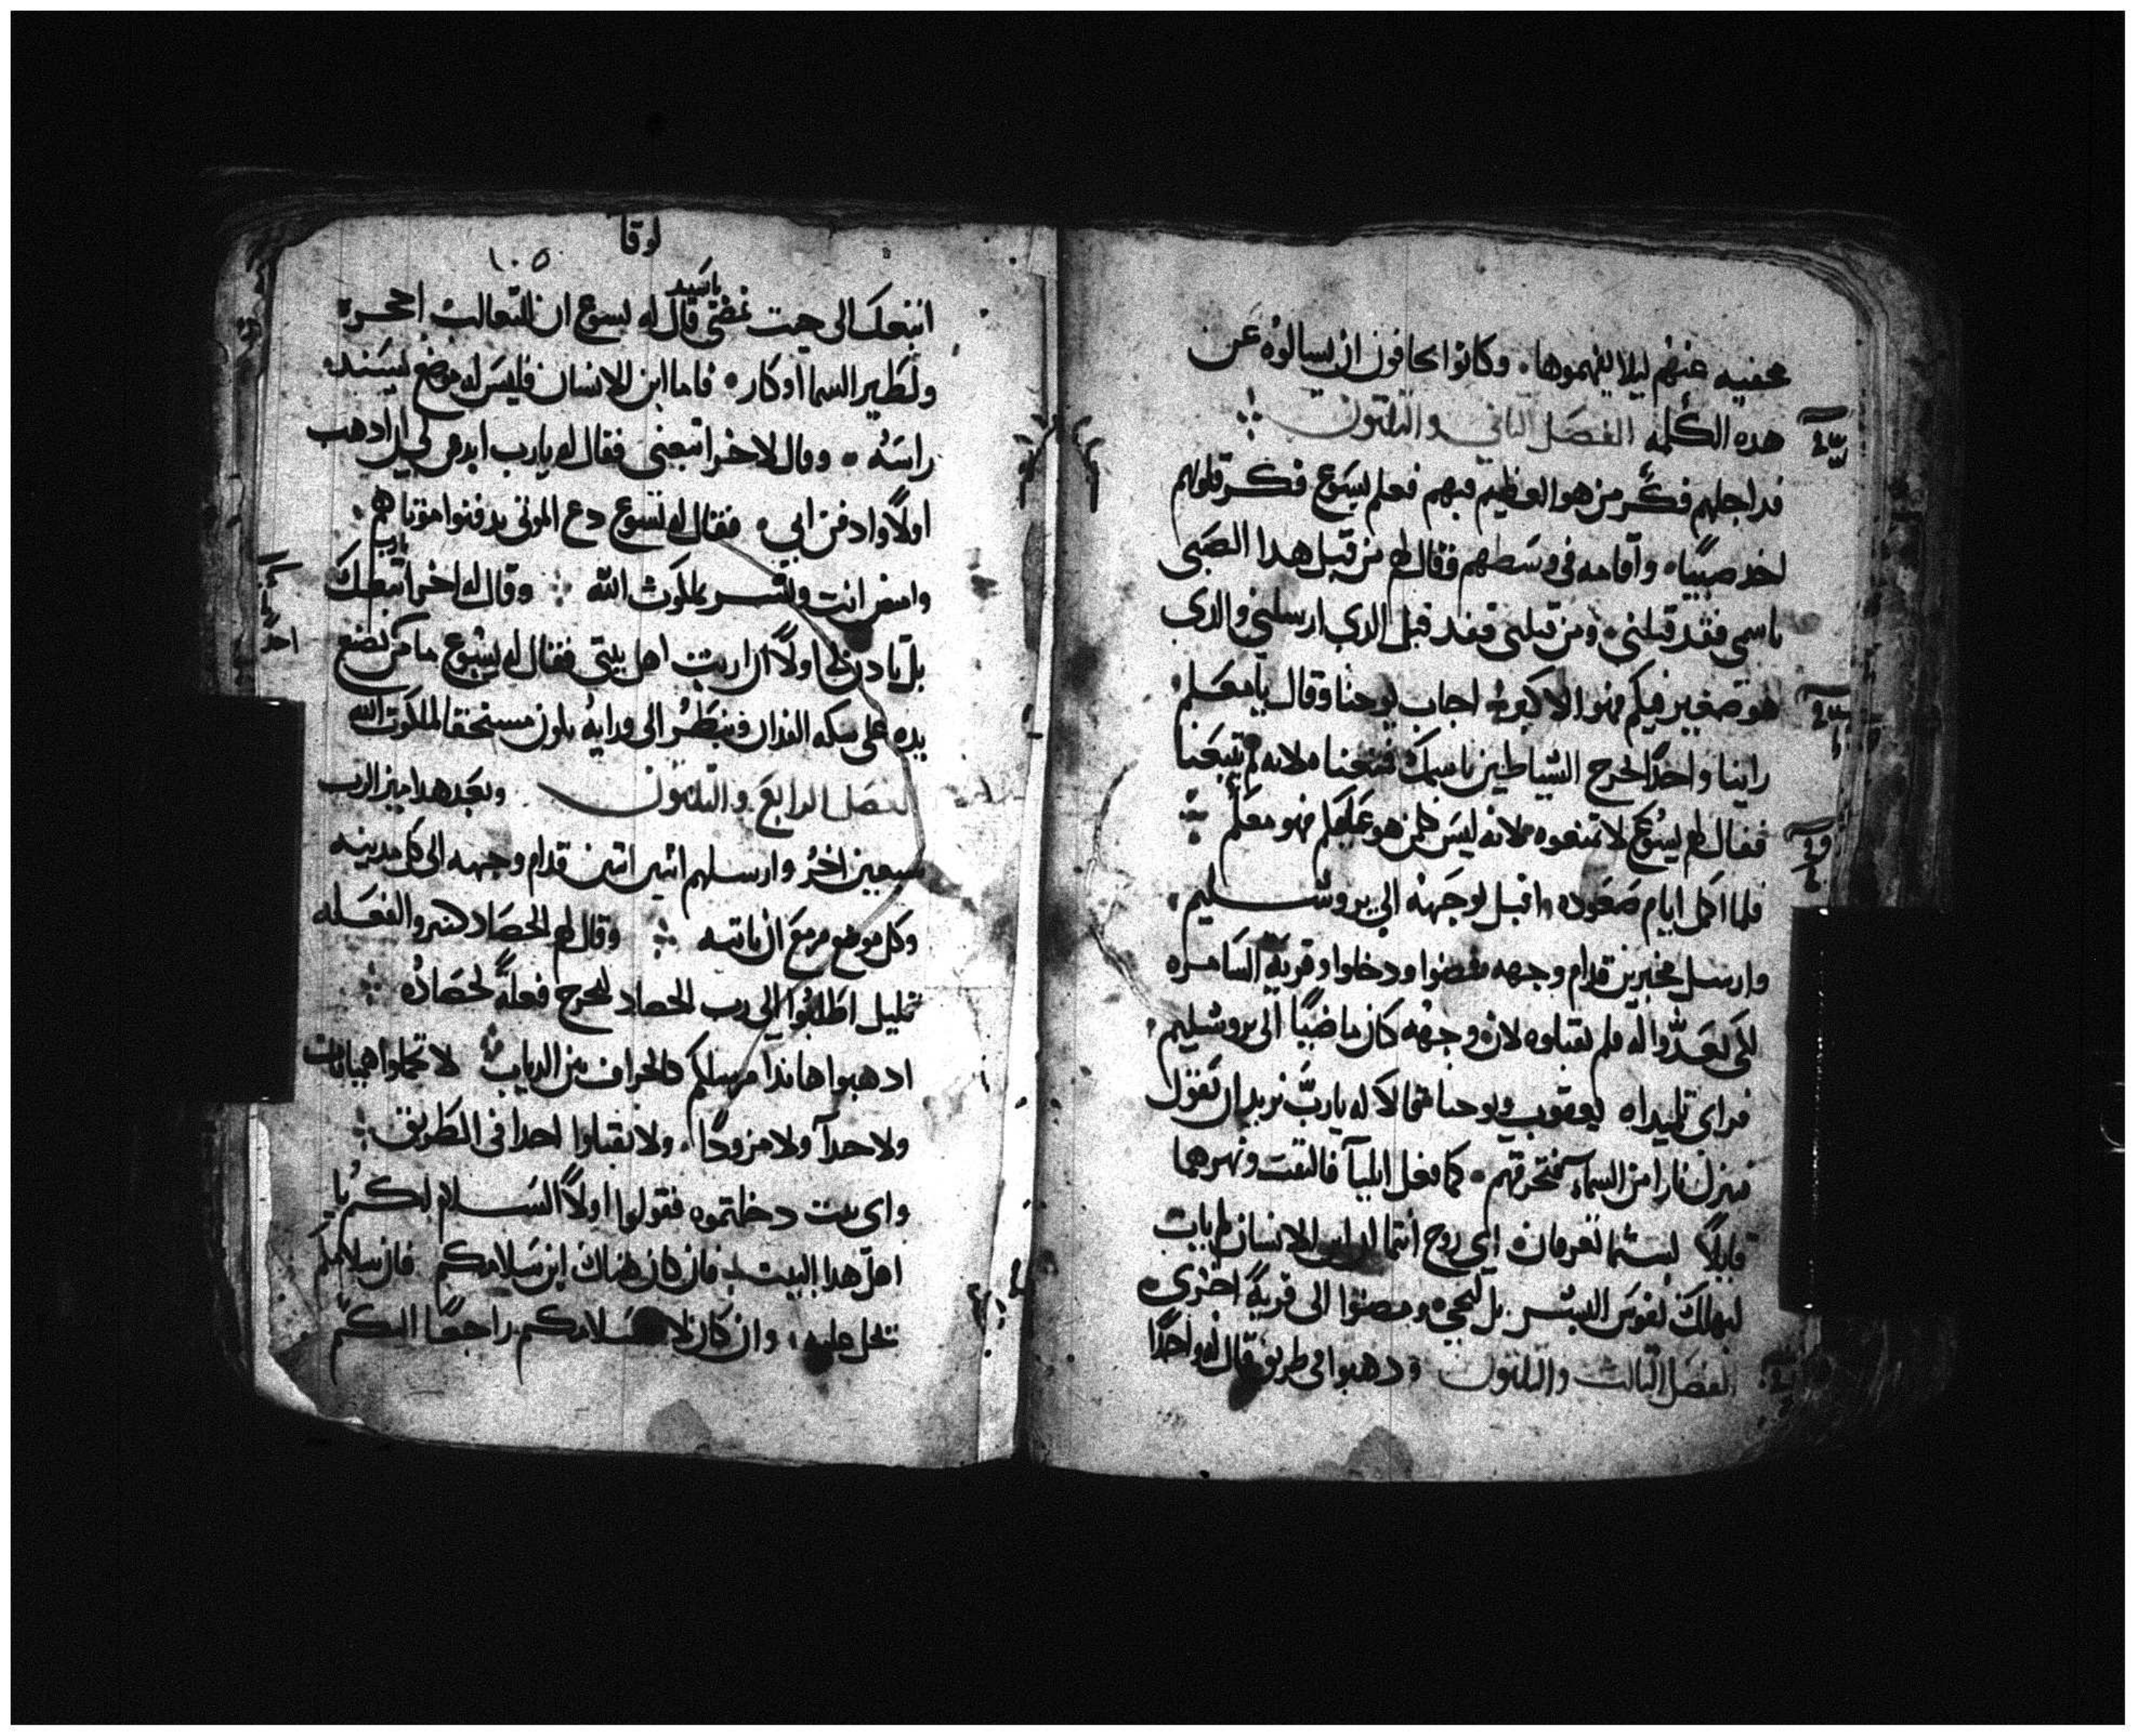 مخفيه عنهم ليلا يفهموها وكانوا يخافون ان يسالوه عن
هده الكلمه الفصل الثاني والتلتون
فداجلهم فكر من هو العظيم فيهم فعلم يسوع فكر قلوبهم
اخد صبيًا واقامه في وسطهم فقال لهم من قبل هدا الصبي
باسمي فقد قبلني ومن قبلني فقد قبل الدي ارسلني والدي
هو صغير فيكم فهو الاكبر اجاب يوحنا وقال يا معلم
راينا واحدًا يخرج الشياطين باسمك فمنعناه لانه لم يتبعنا
فقال لهم يسوع لا تمنعوه لانه ليس هو عليكم فهو معكم
فلما اكمل ايام صعوده اقبل بوجهه الى يروشليم
وارسل مخبرين قدام وجهه فمضوا ودخلوا قرية السامره
لكي يعدوا له فلم يقبلوه لان وجهه كان ماضيًا الى يروشليم
فراى تلميداه يعقوب ويوحنا فقالا له يارب نريد ان نقول
فينزل نارا من السماء فتحرقهم كما فعل ايليا فالتفت ونهرهما
قايلاً لستما تعرفان اي روح انتما ابن الانسان لم يات
ليهلك نفوس البشر بل ليحيي ومضوا الى قرية اخرى
الفصل التالت والتلتون ودهبوا في طريق قال له واحدًا
لوقا
١٠٥
اتبعك الى حيت تمضي يا سيد قال له يسوع ان للتعالب احجره
ولطير السما اوكار فاما ابن الانسان فليس له موضع يسند
راسه وقال لاخر اتبعني فقال له يارب ايدن لي ان ادهب
اولاً وادفن ابي فقال له يسوع دع الموتى يدفنوا موتاهم
وامض انت وبشر بملكوت الله وقال له اخر اتبعك يارب
بل يادن لي اولاً ان ارتب اهل بيتي فقال له يسوع ما من يضع
يده على سكه الفدان وينظر الى ورايه يكون مستحقا لملكوت الله
الفصل الرابع والتلتون وبعد هدا ميز الرب
سبعين اخر وارسلهم اتنين اتنين قدام وجهه الى كل مدينه
وكل موضع مزمع ان ياتيه وقال لهم الحصاد كتير والفعله
قليل اطلبوا الى رب الحصاد ليخرج فعلة لحصاده
ادهبوا هاندا مرسلكم كالخراف بين الدياب لا تحملوا هميانات
ولا حدا ولا مزودًا ولا تقبلوا احدا في الطريق
واى بيت دخلتموه فقولوا اولاً السلام لكم يا
اهل هدا البيت فان كان هناك ابن سلامكم فان سلامكم
تحل عليه وان كان لا سلامكم راجعًا اليكم